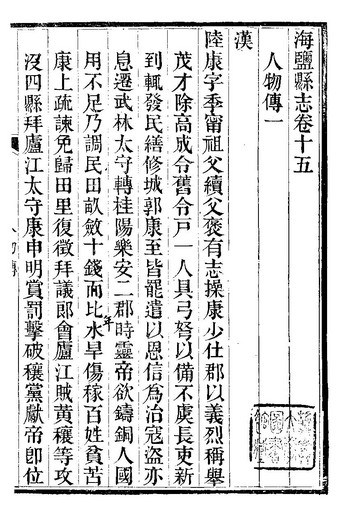 海鹽縣志卷十五
人物傳一
漢
陸康字季甯祖父續父褒有志操康少仕郡以義烈稱舉
茂才除高成令舊令戶一人具弓弩以備不虞長吏新
到輒發民繕修城郭康至皆罷遣以恩信為治寇盜亦
息遷武林太守轉桂陽樂安二郡時靈帝欲鑄銅人國
用不足乃調民田畝斂十錢而比年水旱傷稼百姓貧苦
康上疏諫免歸田里復徵拜議郎會廬江賊黃穰等攻
沒四縣拜廬江太守康申明賞罰擊破穰黨獻帝卽位